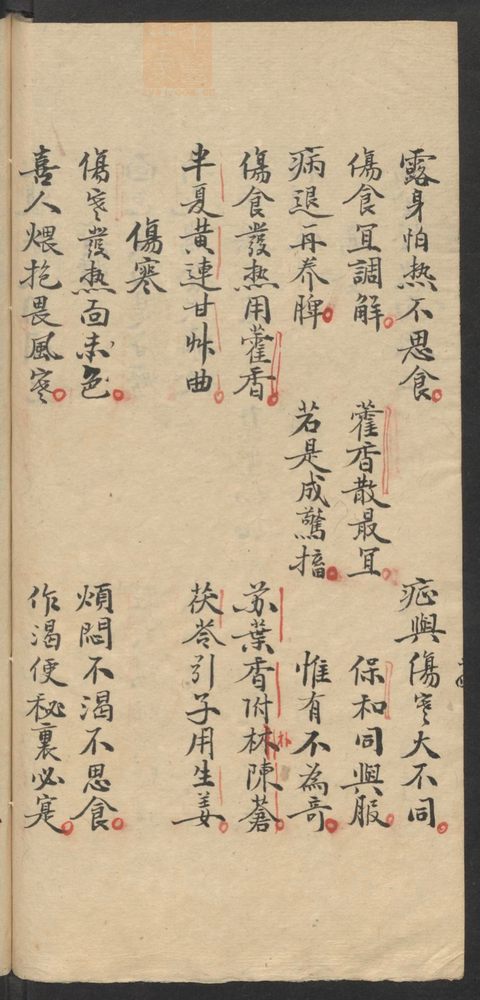 露身怕热不思食 症與傷寒大不同
傷食宜調解 藿香散最宜 保和同與服
病退再养脾 若是成驚搐 惟有不為奇
傷食發热用藿香 苏葉香附朴陳蒼
半夏黄連甘艸曲 茯苓引子用生姜
傷寒
傷寒發热面赤色 煩悶不渴不思食
喜人煨抱畏風寒 作渴便秘裏必寔